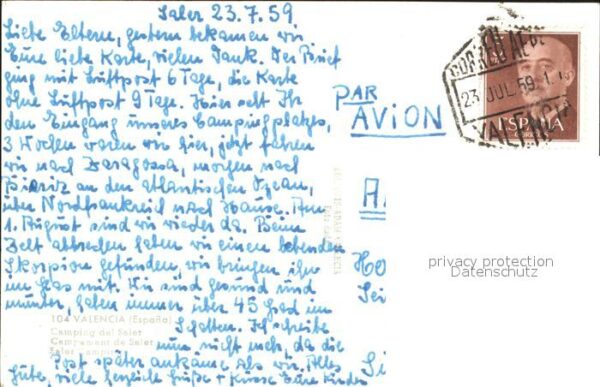 Saler 23.7.59
Liebe Eltern, gestern bekamen wir
Eure liebe Karte, vielen Dank. Der Brief
ging mit Luftpost 6 Tage, die Karte
ohne Luftpost 9 Tage. Hier seht Ihr
den Eingang unseres Campingplatzes,
3 Wochen waren wir hier, jetzt fahren
wir nach Zaragossa, morgen nach
Biaritz an den atlantischen Ozean,
über Nordfrankreich nach Hause. Am
1. August sind wir wieder da. Beim
Zelt abbrechen haben wir einen lebenden
Skorpion gefunden, wir bringen ihn
im Glas mit. Wir sind gesund und
munter, haben immer über 45 Grad im
Schatten. Ich schreibe
nun nicht mehr, da die
Post später ankäme als wir. Alles
Gute, viele herzliche Grüße + Küsse Eure Kinder
104 VALENCIA (España)
Camping del Saler
Campement de Saler
Saler Camping
PAR
AVION
CORREO AEREO
23 JUL 59
VALENCIA
ESPAÑA
CORREOS
privacy protection
Datenschutz